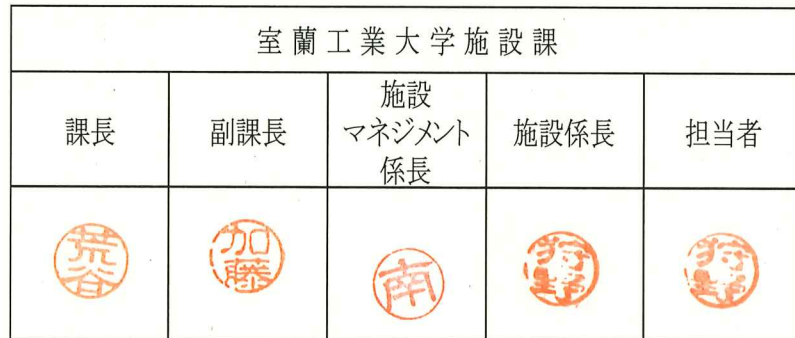 室蘭工業大学施設課
課長
副課長
施設
マネジメント
係長
施設係長
担当者
荒谷
加藤
南
狩野
狩野